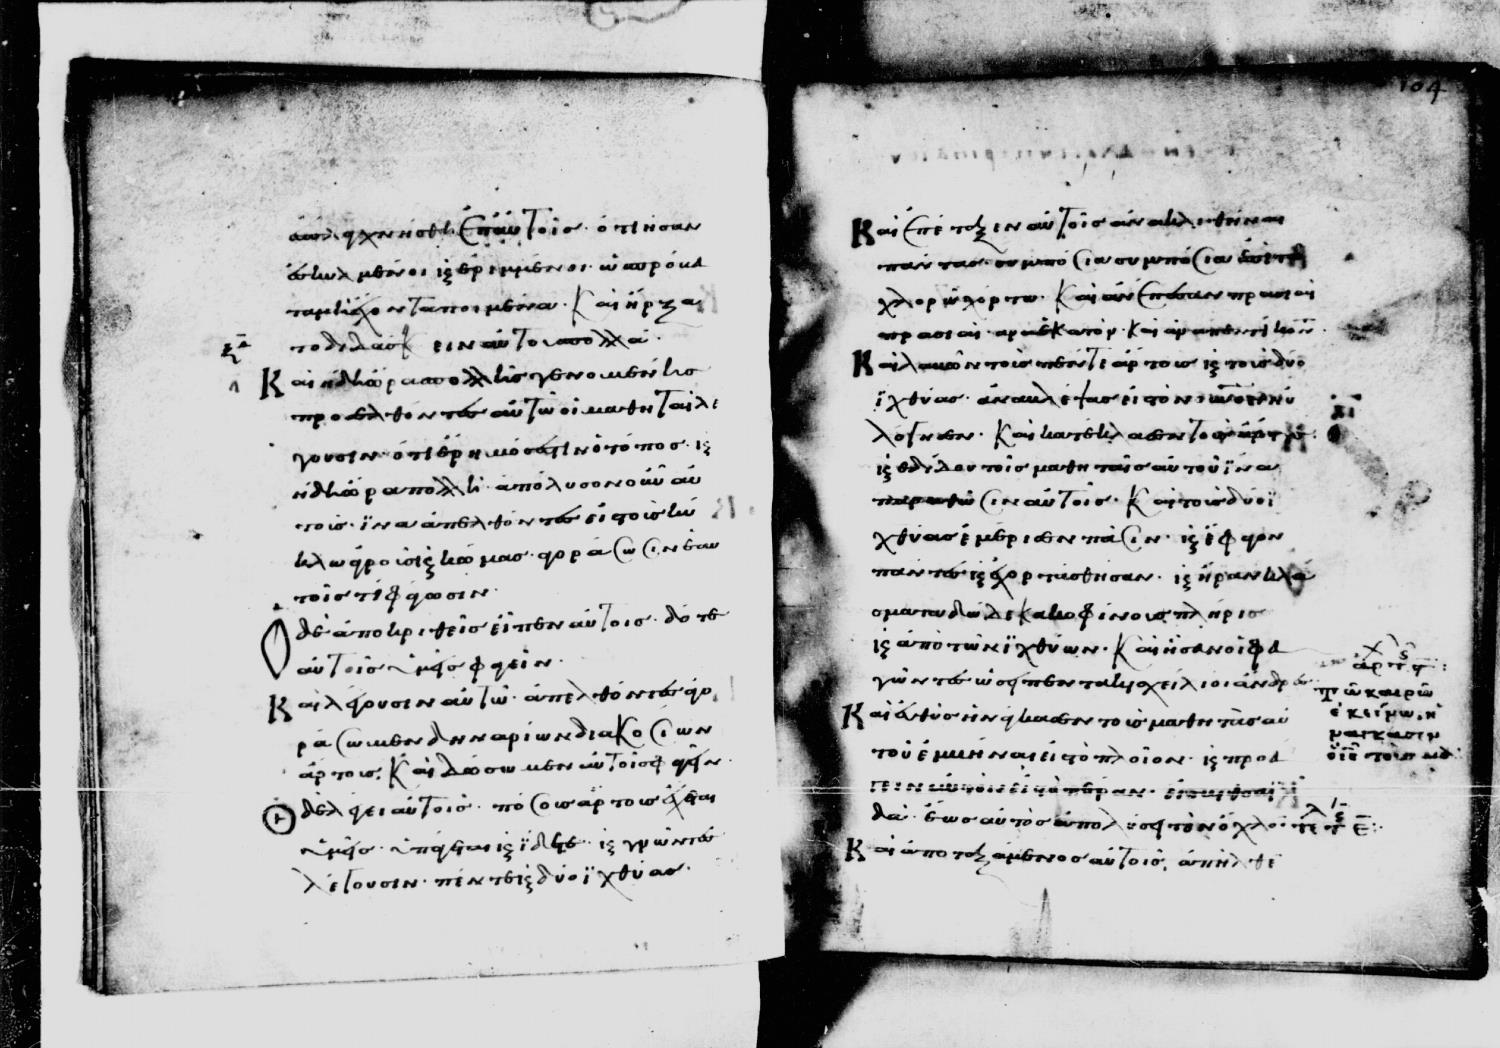 ἐσπλαγχνίσθη ἐπ' αὐτοῖς· ὅτι ἦσαν
ἐσκυλμένοι καὶ ἐριμμένοι· ὡς πρόβα
τα μὴ ἔχοντα ποιμένα· Καὶ ἤρξα
το διδάσκειν αὐτοὺς πολλά·
Καὶ ἤδη ὥρας πολλῆς γενομένης
προσελθόντες αὐτῶ οἱ μαθηταὶ λέ
γουσιν· ὅτι ἔρημός ἐστιν ὁ τόπος· καὶ
ἤδη ὥρα πολλή· ἀπόλυσον οὖν αὐ
τοὺς· ἵνα ἀπελθόντες εἰς τοὺς κύ
κλω ἀγροὺς καὶ κώμας· ἀγοράσωσιν ἑαυ
τοῖς τί φάγωσιν·
Ὁ δὲ ἀποκριθεὶς εἶπεν αὐτοῖς· δότε
αὐτοῖς ὑμεῖς φαγεῖν·
Καὶ λέγουσιν αὐτῶ· ἀπελθόντες ἀγο
ράσωμεν δηναρίων διακοσίων
ἄρτους· Καὶ δώσωμεν αὐτοῖς φαγεῖν·
Ὁ δὲ λέγει αὐτοῖς· πόσους ἄρτους ἔχετε
ὑπάγετε καὶ ἴδετε· καὶ γνόντες
λέγουσιν· πέντε καὶ δύο ἰχθύας·
104
Καὶ ἐπέταξεν αὐτοῖς ἀνακλιθῆναι
πάντας· συμπόσια συμπόσια ἐπὶ τῶ
χλορῶ χόρτω· Καὶ ἀνέπεσαν πρασιαὶ
πρασιαὶ· ἀνὰ ἑκατὸν· Καὶ ἀνὰ πεντήκοντ·
Καὶ λαβὼν τοὺς πέντε ἄρτους καὶ τοὺς δύο
ἰχθύας· ἀναβλέψας εἰς τὸν οὐρανὸν ηὐ
λόγησεν· Καὶ κατέκλασεν τοὺς ἄρτους·
καὶ ἐδίδου τοῖς μαθηταῖς αὐτοῦ ἵνα
παραθῶσιν αὐτοῖς· Καὶ τοὺς δύο ἰ
χθύας ἐμέρισεν πᾶσιν· καὶ ἔφαγον
πάντες καὶ ἐχορτάσθησαν· καὶ ἦραν κλα
σμάτων δώδεκα κοφίνους πλήρις
καὶ ἀπὸ τῶν ἰχθύων· Καὶ ἦσαν οἱ φα
γόντες ὡσεὶ πεντακισχείλιοι ἄνδρες·
Καὶ εὐθὺς ἠνάγκασεν τοὺς μαθητὰς αὐ
τοῦ ἐμβῆναι εἰς τὸ πλοῖον· καὶ προά
γειν αὐτὸν εἰς τὸ πέραν·
δὰ· ἕως αὐτὸς ἀπολύσει τὸν ὄχλον·
Καὶ ἀποταξάμενος αὐτοῖς, ἀπῆλθε
τῶ καιρῶ
ἐκείνω, ἠ
νάγκασεν